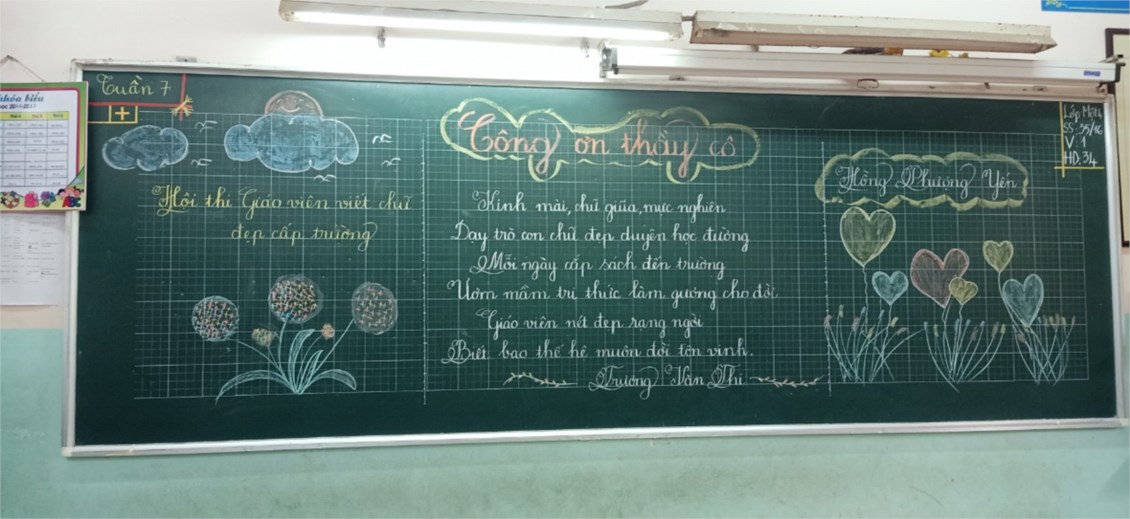 khóa biểu
Tuần 7
Hội thi Giáo viên viết chữ
đẹp cấp trường
Công ơn thầy cô
Kính mài, chũ giũa, mực nghiên
Dạy trò con chữ đẹp duyên học đường
Mỗi ngày cắp sách đến trường
Ươm mầm tri thức làm gương cho đời
Giáo viên nét đẹp rạng ngời
Biết bao thế hệ muôn đời tôn vinh.
Trương Văn Thi
Hồng Phương Yên
Lớp Một4
SS: 35/16
V: 1
HD: 34